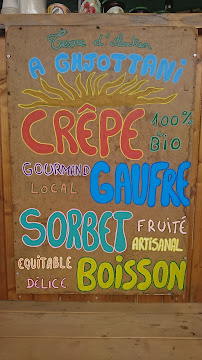 Terre d'illusion
A GHJOTTANI
CRÊPE 100%
BIO
GOURMAND
LOCAL GAUFRE
SORBET FRUITÉ
ARTISANAL
EQUITABLE
DÉLICE BOISSON